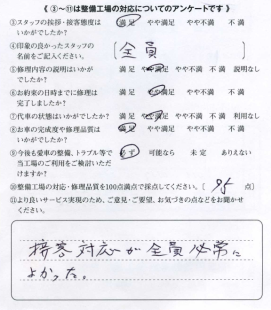 《 ③~⑪は整備工場の対応についてのアンケートです 》
③スタッフの挨拶・接客態度は 満 足 やや満足 やや不満 不 満
いかがでしたか?
④印象の良かったスタッフの 〔全員 〕
名前をご記入ください。
⑤修理内容の説明はいかが 満 足 やや満足 やや不満 不 満 説明なし
でしたか?
⑥お約束の日時までに修理は 満 足 やや満足 やや不満 不 満
完了しましたか?
⑦代車の状態はいかがでしたか? 満 足 やや満足 やや不満 不 満 利用なし
⑧お車の完成度や修理品質は 満 足 やや満足 やや不満 不 満
いかがでしたか?
⑨今後も愛車の整備、トラブル等で 必 ず 可能なら 未 定 ありえない
当工場のご利用をご検討いただ
けますか?
⑩整備工場の対応・修理品質を100点満点で採点してください。〔 95 点〕
⑪より良いサービス実現のため、ご意見・ご要望、お気づきの点などをお聞かせ
ください。
接客対応が全員必常に
よかった。